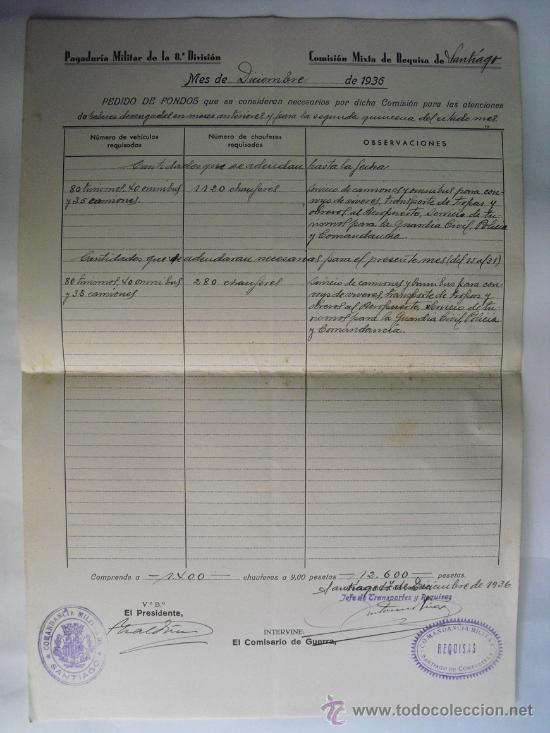 Pagaduría Militar de la 8.ª División
Comisión Mixta de Requisa de Santiago
Mes de Diciembre de 1936
PEDIDO DE FONDOS que se consideran necesarios por dicha Comisión para las atenciones
de haberes devengados en meses anteriores y para la segunda quincena del citado mes.
Número de vehículos requisados
Número de chauferes requisados
OBSERVACIONES
Cantidades que se adeudan hasta la fecha
80 turismos, 40 omnibus
y 35 camiones.
1120 chauferes
Servicio de camiones y omnibus para con-
voys de viveres, transporte de tropas y
obreros al Aeropuerto, servicio de tu-
rismos para la Guardia Civil, Policia
y Comandancia.
Cantidades que se adeudaran necesarias para el presente mes (del 15 al 31)
80 turismos, 40 omnibus
y 35 camiones
280 chauferes
Servicio de camiones y omnibus para con-
voys de viveres, transporte de tropas y
obreros al Aeropuerto, servicio de tu-
rismos para la Guardia Civil, Policia
y Comandancia.
Comprende a 1400 chauferes a 9,00 pesetas 12.600 pesetas.
Santiago 15 de Diciembre de 1936
Jefe de Transportes y Requisas
V.º B.º
El Presidente,
INTERVINE:
El Comisario de Guerra,
COMANDANCIA MILITAR
SANTIAGO
COMANDANCIA MILITAR
REQUISAS
SANTIAGO DE COMPOSTELA
todocoleccion
www.todocoleccion.net